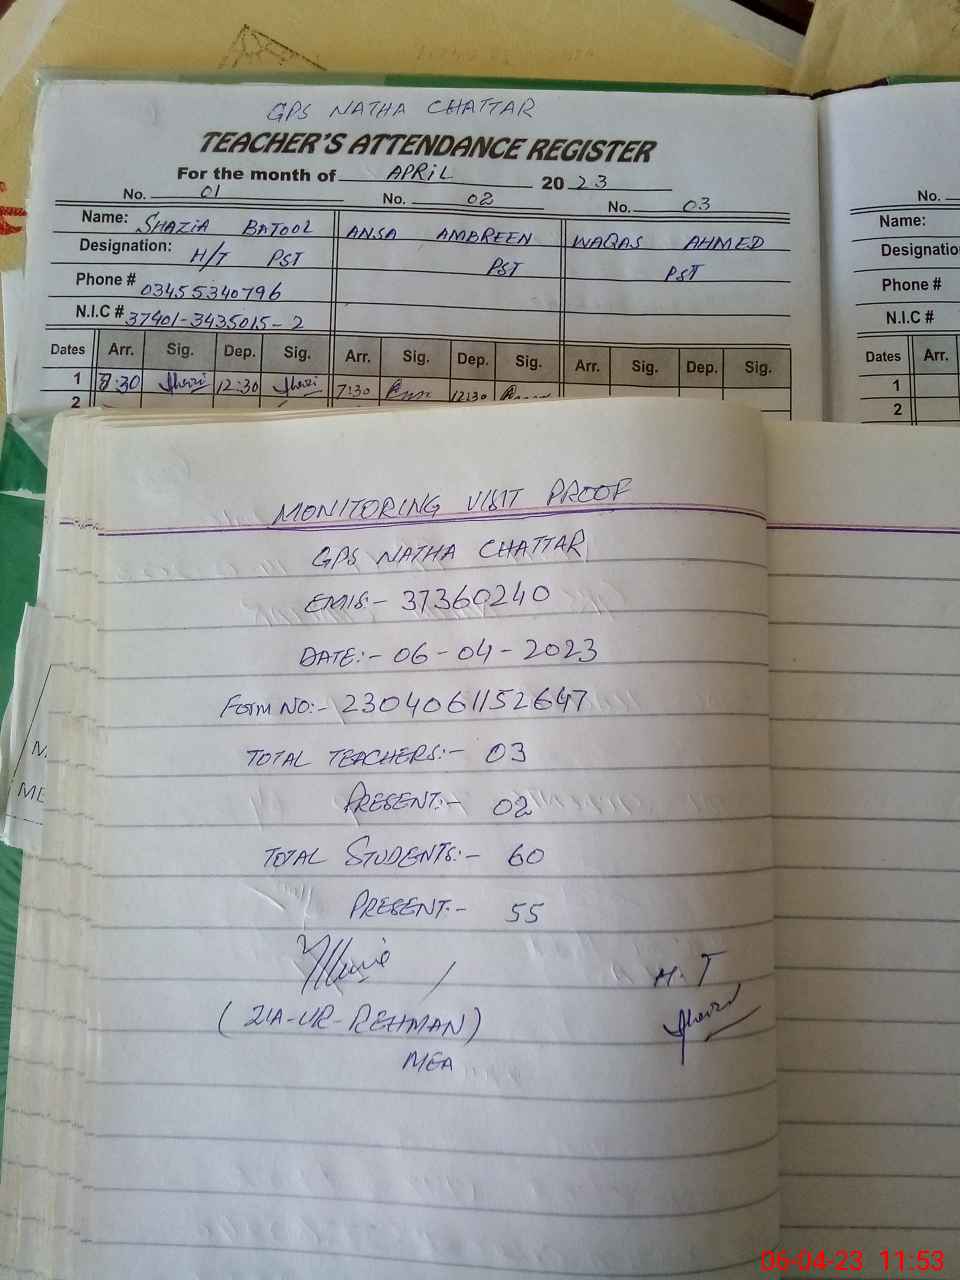 GPS NATHA CHATTAR
TEACHER'S ATTENDANCE REGISTER
For the month of APRIL 2023
No. 01 No. 02 No. 03 No.
Name: SHAZIA BATOOL ANSA AMBREEN WAQAS AHMED Name:
Designation: H/T PST PST PST Designatio
Phone # 03455340796 Phone #
N.I.C # 37401-3435015-2 N.I.C #
Dates Arr. Sig. Dep. Sig. Arr. Sig. Dep. Sig. Arr. Sig. Dep. Sig. Dates Arr.
1 7:30 12:30 7:30 12:30 1
2 2
MONITORING VISIT PROOF
GPS NATHA CHATTAR
EMIS:- 37360240
DATE:- 06-04-2023
Form NO:- 2304061152647
TOTAL TEACHERS:- 03
PRESENT:- 02
TOTAL STUDENTS:- 60
PRESENT:- 55
H.T
(ZIA-UR-REHMAN)
MEA
06-04-23 11:53